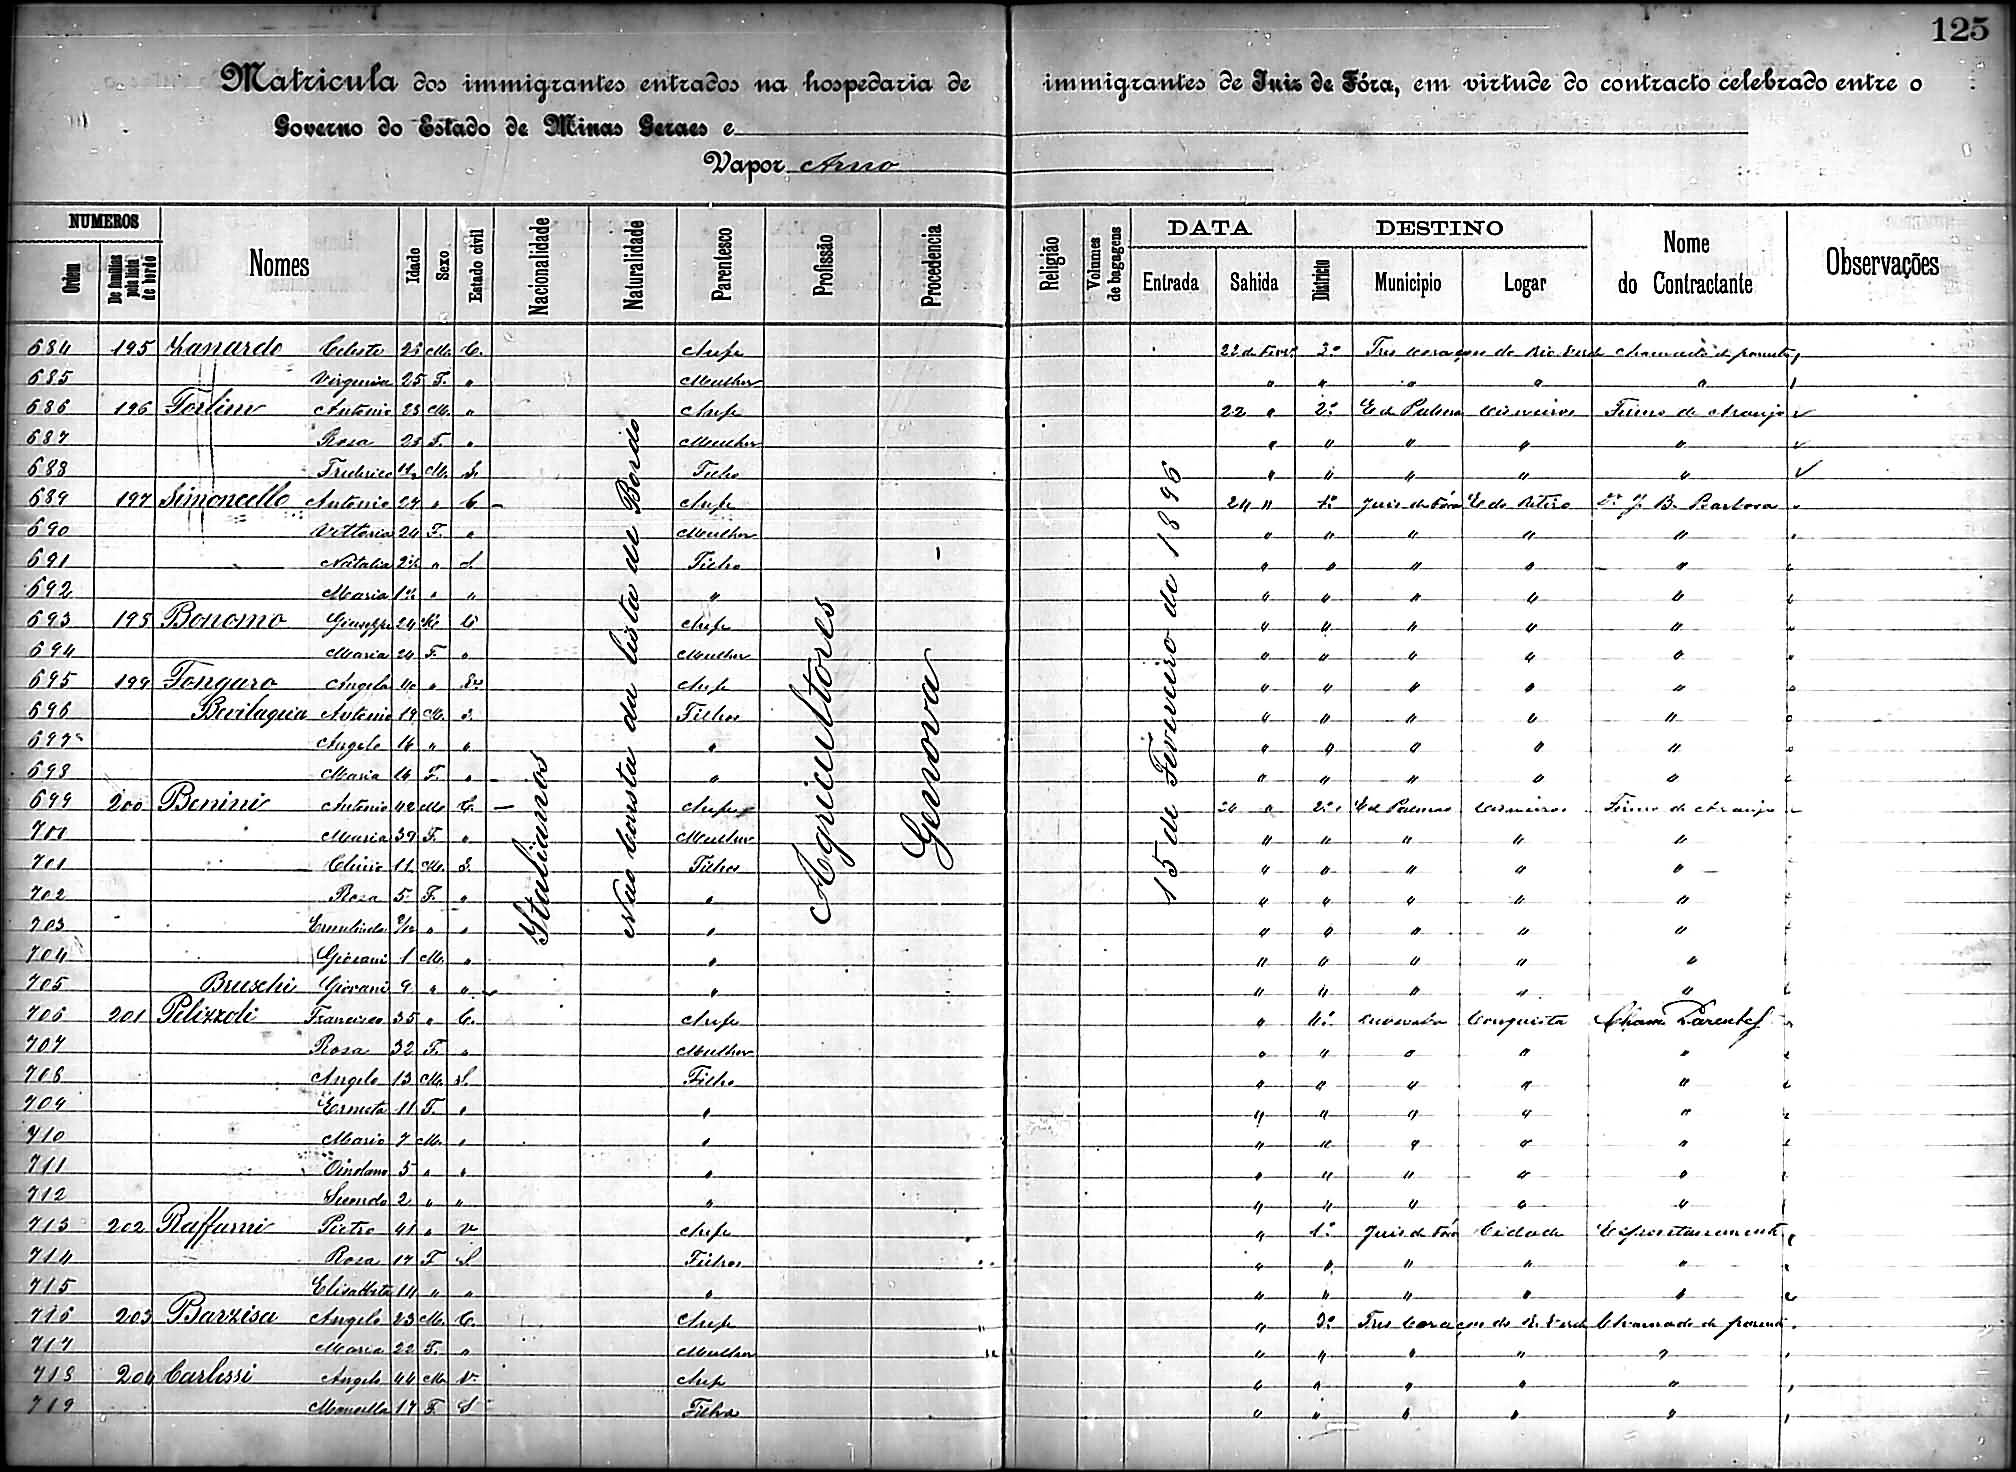 125
Matricula dos immigrantes entrados na hospedaria de immigrantes de Juiz de Fóra, em virtude do contracto celebrado entre o
Governo do Estado de Minas Geraes e
Vapor Arno
NUMEROS Nomes Idade Sexo Estado civil Nacionalidade Naturalidade Parentesco Profissão Procedencia Religião Volumes de bagagens DATA DESTINO Nome do Contractante Observações
Ordem De familias pela lista de bordo Entrada Sahida Districto Municipio Logar
Italianos
Não consta da lista de Bordo
Agricultores
Genova
15 de Fevereiro de 1896
684 195 Zanardo Celeste C. Chefe 22 de Fevrº 3º Tres Corações do Rio Verde Chamado de parente
685 Virginia 25 F. " Mulher " " " " "
686 196 Antonio 23 M. " Chefe 22 " 2º E. de Palma Cisneiros Firmo de Araujo
687 Rosa 23 F. " Mulher " " " " "
688 Frederico M. S. Filho " " " " "
689 197 Simoncello Antonio 27 " C Chefe 24 " 1º Juiz de Fóra E. do Retiro Dr. J. B. Barbosa
690 Vittoria 24 F. " Mulher " " " " "
691 Natalia " S. Filho " " " " "
692 Maria " " " " " " " "
693 198 Bonomo Giuseppe 24 M. C Chefe " " " " "
694 Maria 24 F. " Mulher " " " " "
695 199 Tongaro Angela " Chefe " " " " "
696 Bevilaqua Antonio 19 M. S. Filhos " " " " "
697 Angelo 16 " " " " " " " "
698 Maria 14 F. " " " " " " "
699 200 Benini Antonio 42 M. C. Chefe 24 " 2º E. de Palmas Cisneiros Firmo de Araujo
700 Maria 39 F. " Mulher " " " " "
701 11 M. S. Filhos " " " " "
702 Rosa 5 F. " " " " " " "
703 Ermelinda " " " " " " " "
704 Giovani 1 M. " " " " " " "
705 Bruschi Giovani 9 " " " " " " " "
706 201 Pelizzoli Francisco 35 " C. Chefe " Conquista Cham. Parentes
707 Rosa 32 F. " Mulher " " " " "
708 Angelo 13 M. S. Filho " " " " "
709 Ernesta 11 F. " " " " " " "
710 Mario 7 M. " " " " " " "
711 5 " " " " " " " "
712 2 " " " " " " " "
713 202 Pietro 41 " V Chefe " 1º Juiz de Fóra Cidade Espontaneamente
714 Rosa 17 F S Filhos " " " " "
715 Elisabetta 14 " " " " " " " "
716 203 Barzisa Angelo 23 M. C. Chefe " 3º Tres Corações do R. Verde Chamado de parente
717 Maria 22 F. " Mulher " " " " "
718 204 Carlessi Angelo 44 M. V. Chefe " " " " "
719 17 F. S Filha " " " " "